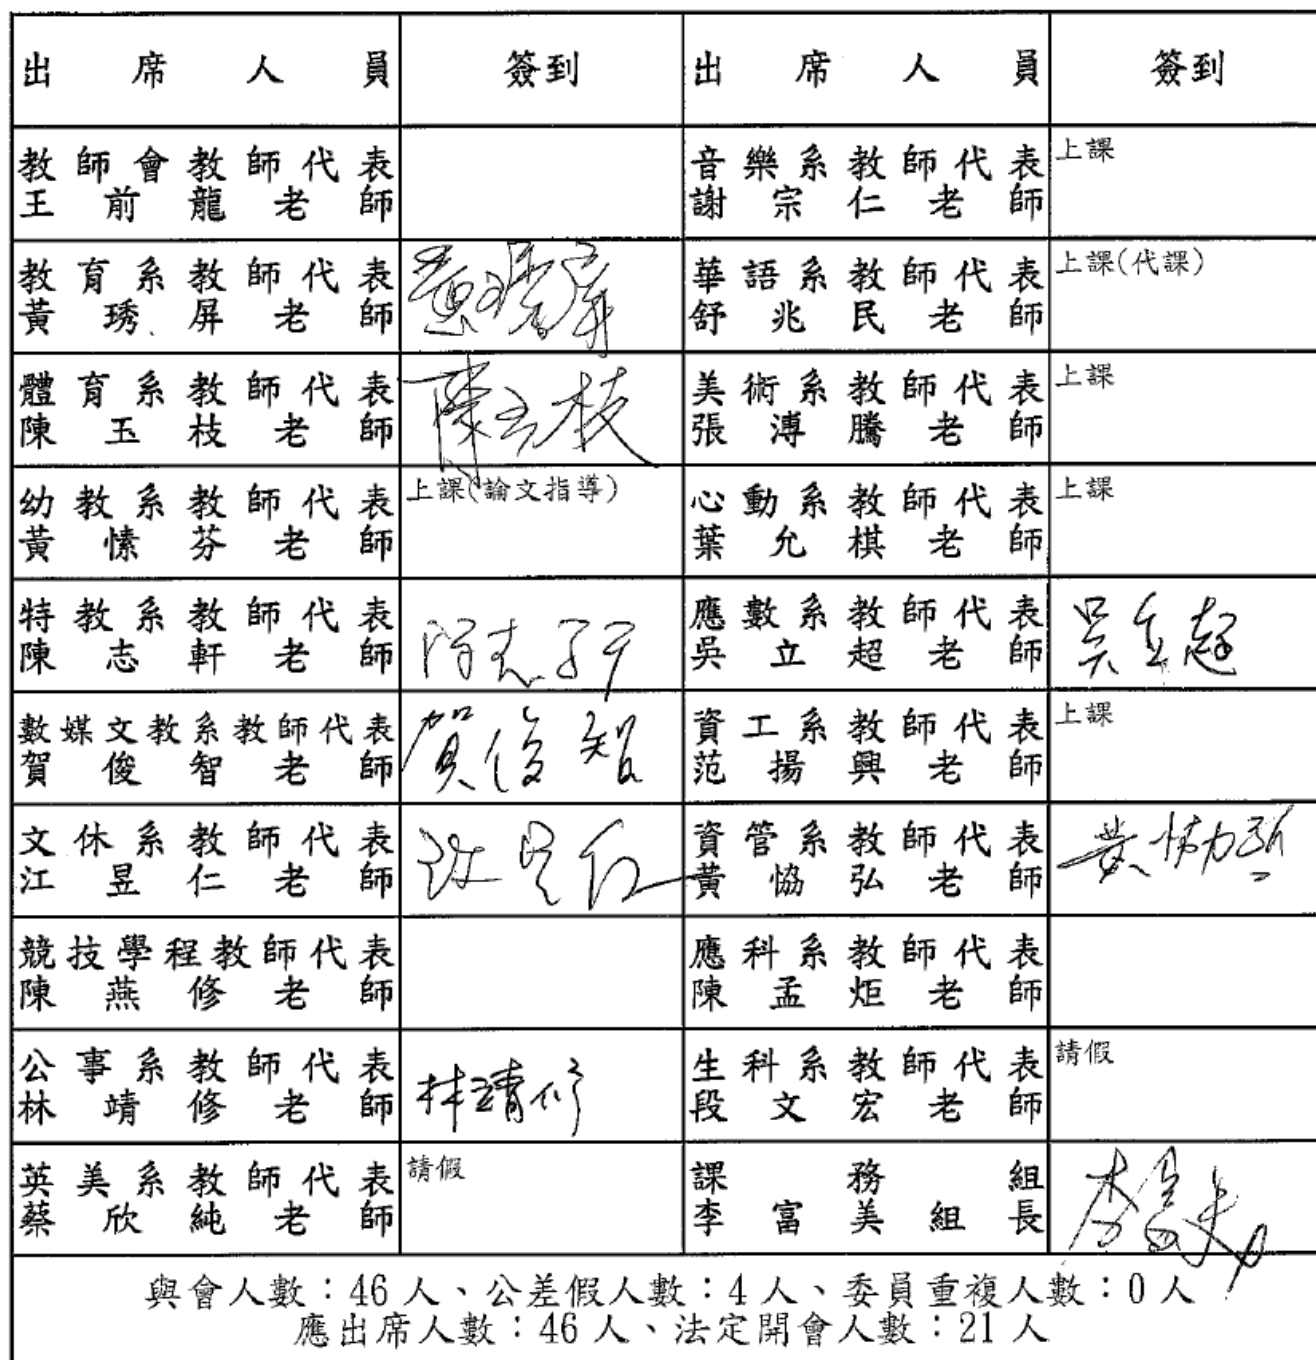 出席人員 簽到 出席人員 簽到
教師會教師代表
王前龍老師
音樂系教師代表
謝宗仁老師
上課
教育系教師代表
黃琇屏老師
黃琇屏
華語系教師代表
舒兆民老師
上課(代課)
體育系教師代表
陳玉枝老師
陳玉枝
美術系教師代表
張溥騰老師
上課
幼教系教師代表
黃愫芬老師
上課(論文指導)
心動系教師代表
葉允棋老師
上課
特教系教師代表
陳志軒老師
陳志軒
應數系教師代表
吳立超老師
吳立超
數媒文教系教師代表
賀俊智老師
賀俊智
資工系教師代表
范揚興老師
上課
文休系教師代表
江昱仁老師
江昱仁
資管系教師代表
黃協弘老師
黃協弘
競技學程教師代表
陳燕修老師
應科系教師代表
陳孟炬老師
公事系教師代表
林靖修老師
林靖修
生科系教師代表
段文宏老師
請假
英美系教師代表
蔡欣純老師
請假
課務組
李富美組長
李富美
與會人數：46人、公差假人數：4人、委員重複人數：0人
應出席人數：46人、法定開會人數：21人